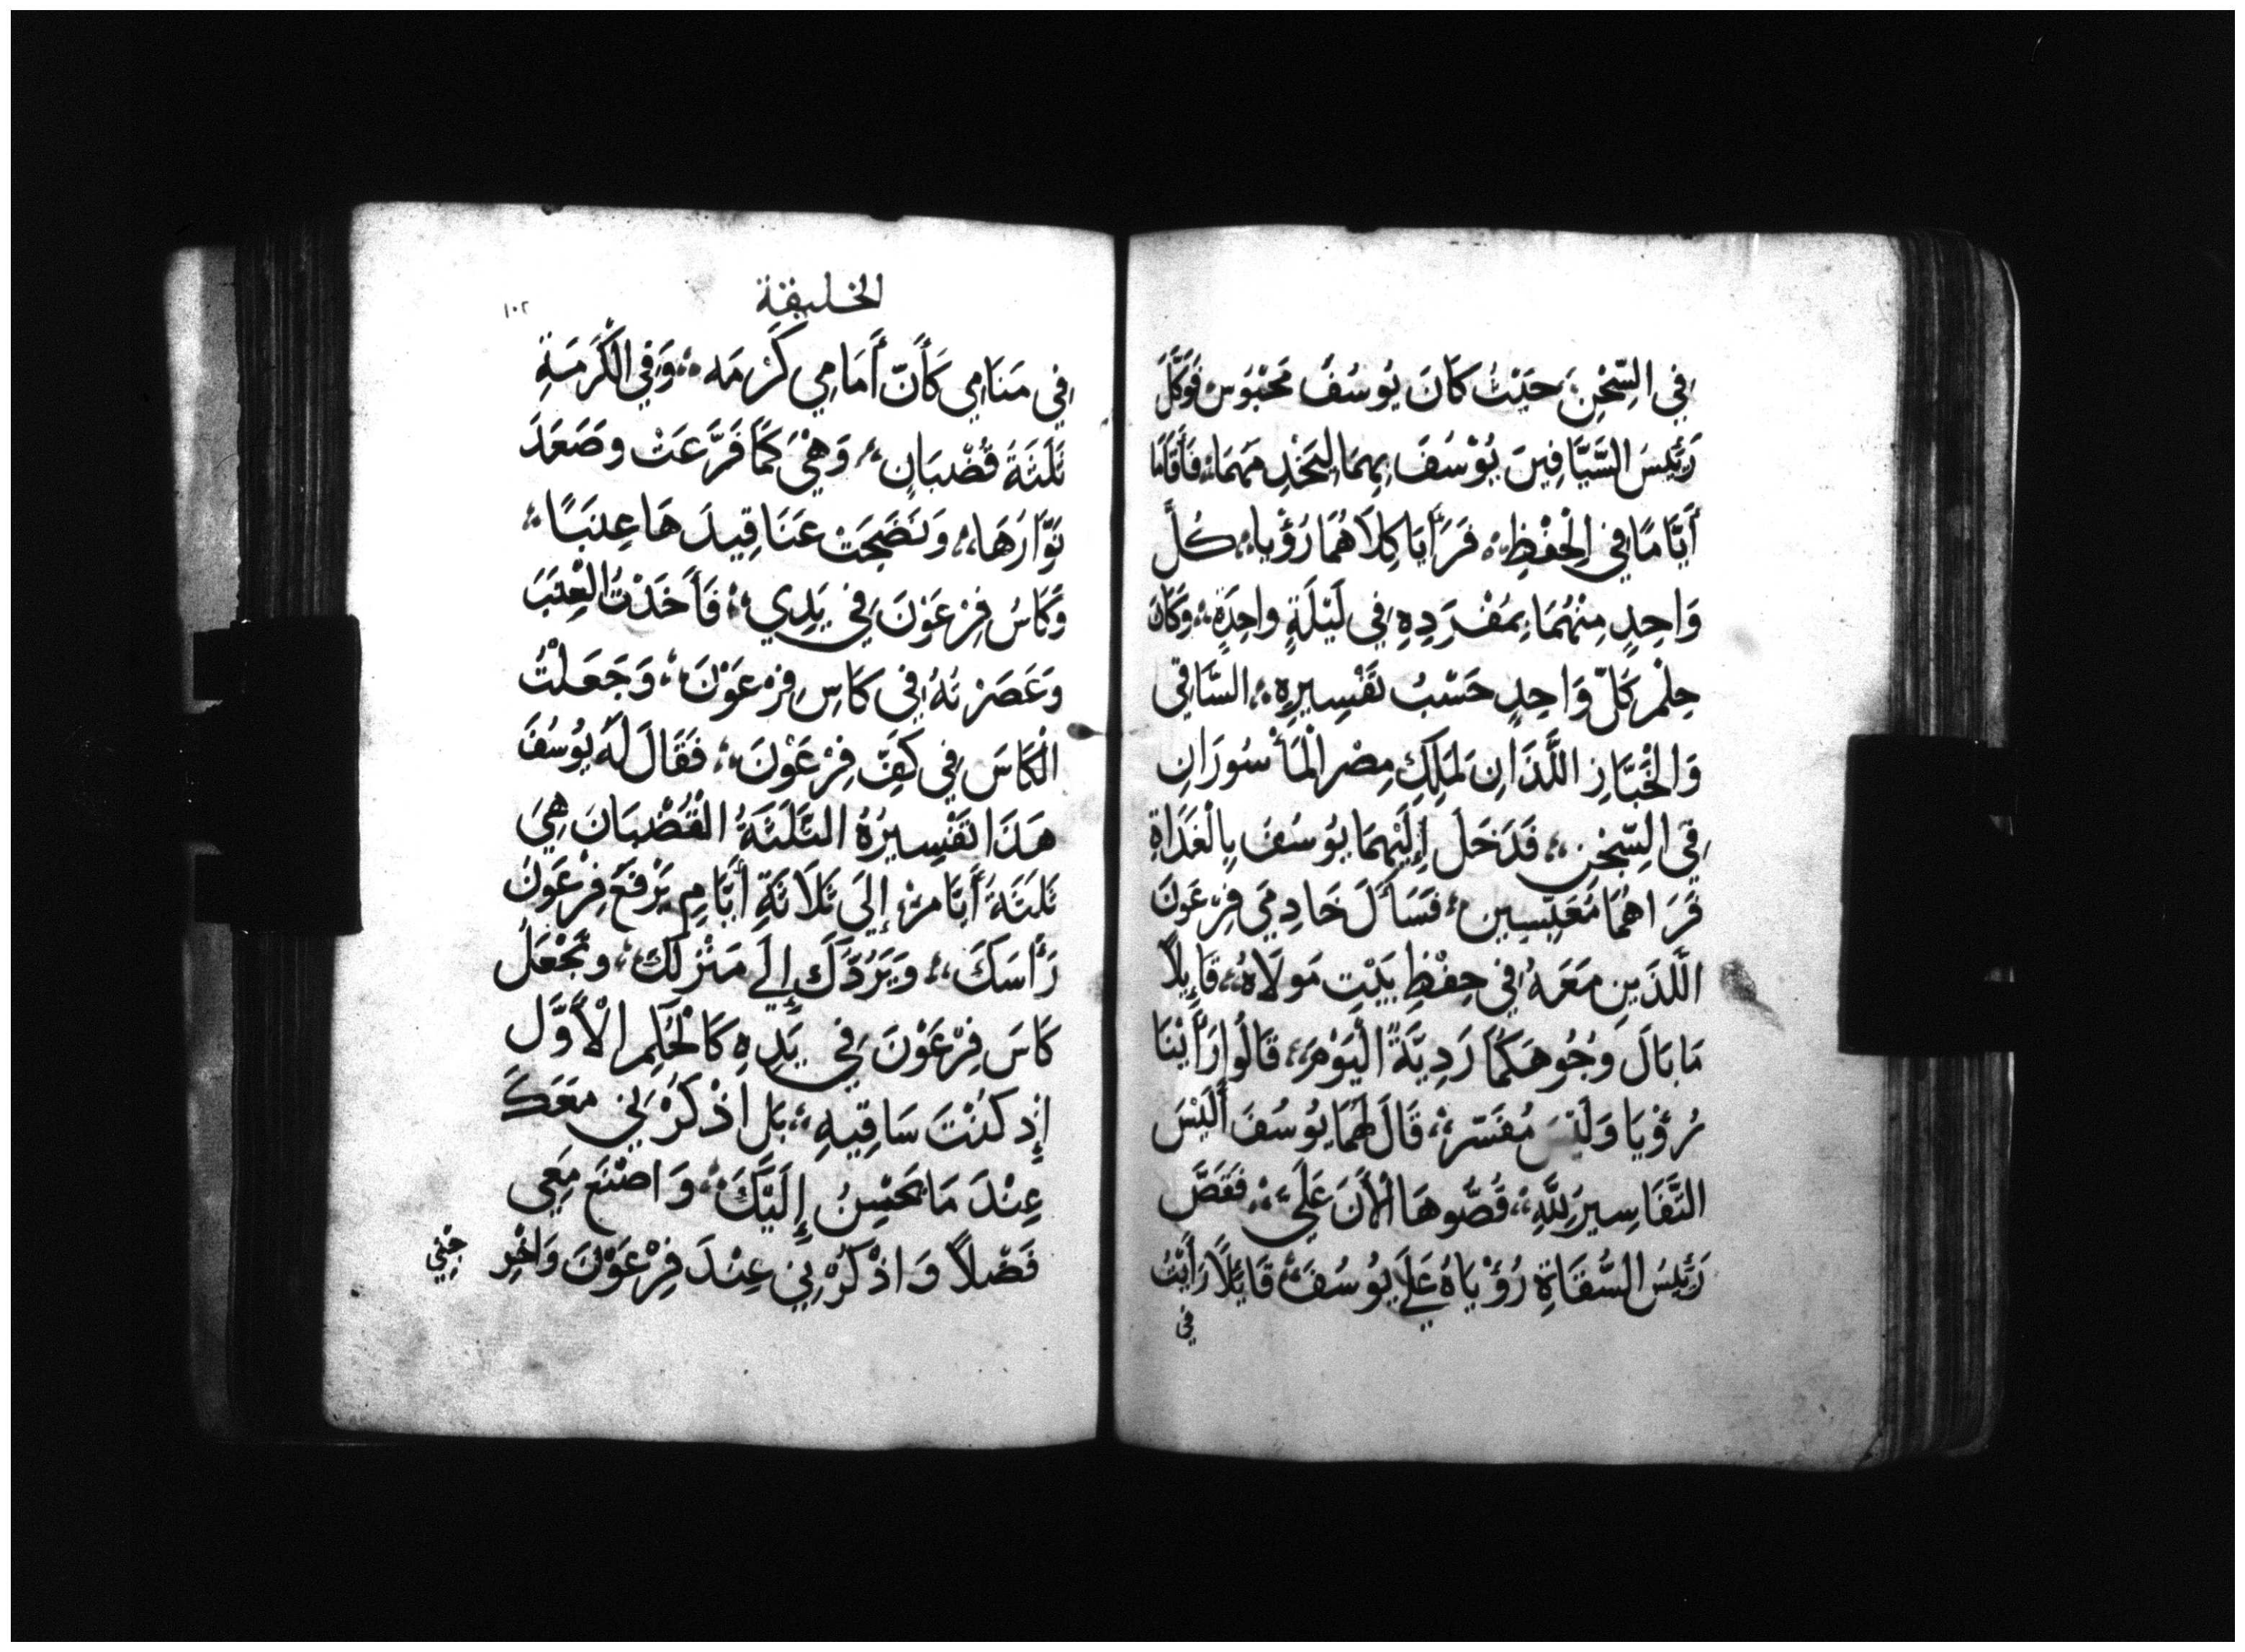 فِي السِّجْنِ حَيْثُ كَانَ يُوسُفُ مَحْبُوَسْ فَوَكَّلَ
رَئِيسَ السَّيَّافِينَ يُوْسُفَ بِهِمَا لِيَخْدِمَهمَا، فَأَقَامَا
أَيَّامًا فِي الْحِفْظِ، فَرَأَيَا كِلَاهُمَا رُؤْيا، كُلَّ
وَاحِدٍ مِنْهُمَا بِمَفْرَدِهِ فِي لَيْلَةٍ واحِدَةٍ، وَكَانَ
حِلْم كَلّ وَاحِدٍ حَسْبُ تَفْسِيرِهِ، السَّاقِي
وَالْخَبَّازِ اللَّذَانِ لمَلِكِ مِصْر الْمَأْسُورَانِ
فِي السِّجْنِ، فَدَخَلَ إِلَيْهِمَا يُوسُفَ بِالْغَدَاةِ
فَرَاهُمَا مُعَبِّسِين، فَسَأَلَ خَادِمَي فِرْعَونَ
اللَّذَيِن مَعَهُ فِي حِفْظِ بَيْتِ مَولَاهُ، قَايِلًا
مَا بَالَ وَجُوهَكُمَا رَدِيَّةً الْيَوْمَ، قَالُوا رَأَيْنَا
رُؤْيَا وَلَيْسَ مُفَسّر، قَالَ لَهُمَا يُوسُفَ أَلَيْسَ
التَّفَاسِيرَ لِلَّهِ، قُصُّوهَا الْأَنَ عَلَي، فَقَصَّ
رَئِيسُ السُّقَاةِ رُؤْيَاهُ عَلَي يُوسُفَ قَايَلًا رَأَيْتُ
في
الخليقة
١٠٢
فِي مَنَامِي كَأَنّ أَمَامِي كَرْمَه، وَفِي الْكَرْمَةِ
ثَلَثَةَ قُضْبَانِ، وَهْيَ كَمَا فَرَّعَتْ وصَعَدَ
نَوّارُهَا، وَنَضَجَتْ عَنَاقِيدَهَا عِنَبًا،
وَكَاسُ فِرْعَوْنَ فِي يَدِي، فَأَخَذْتُ الْعِنَبَ
وَعَصَرْتُهُ فِي كَاسِ فِرْعَوْنَ، وَجَعَلْتُ
الْكَاسَ فِي كَفِّ فِرْعَوْنَ، فَقَالَ لَهُ يُوسُفَ
هَذَا تَفْسِيرُهُ الثَّلَثَةُ الْقُضْبَانَ هِيَ
ثَلَثَةُ أَيَّامْ، إِلَى ثَلَاثَةِ أَيَّامٍ يَرْفَعَ فِرْعَوْنَ
رَأْسَكَ، وَيَرُدَّكَ إِلَي مَنْزِلَك، وتَجْعَلُ
كَاسَ فِرْعَوْنَ فِي يَدِهِ كَالْحُلِمِ الْأَوَّل
إِذ كُنْتَ سَاقِيهِ، بَل اذْكُرْنِي مَعَكَ
عِنْدَ مَا يَحْسِنُ إِلَيْكَ، وَاصْنَع مَعِي
فَضْلًا وَاذْكُرْنِي عِنْدَ فِرْعَوْنَ وَاخْرِ
جْنِي